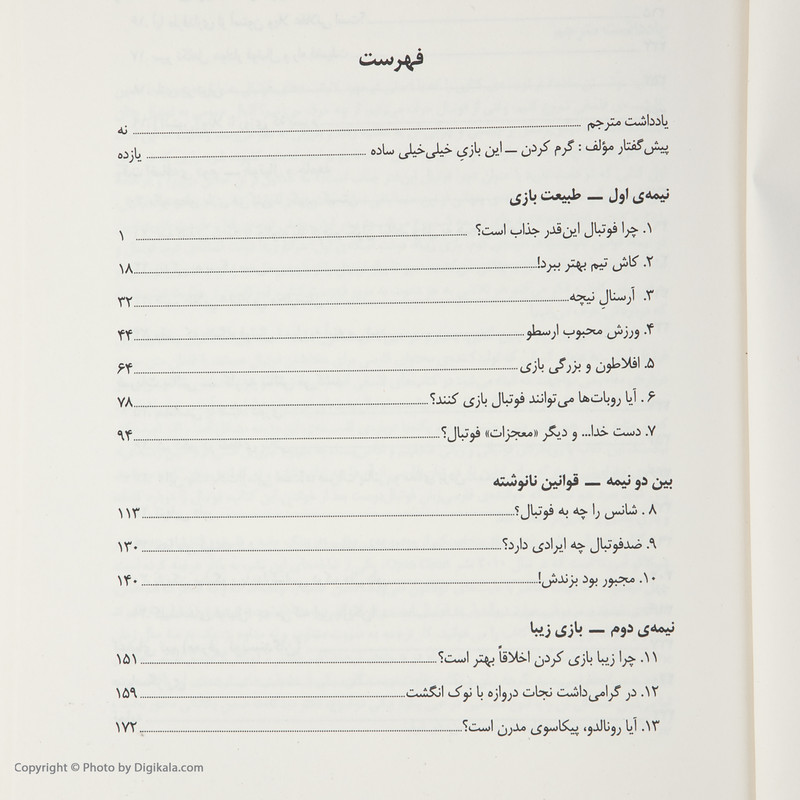 فهرست
یادداشت مترجم ........ نه
پیش‌گفتار مؤلف : گرم کردن ــ این بازیِ خیلی‌خیلی ساده ........ یازده
نیمه‌ی اول ــ طبیعت بازی
۱. چرا فوتبال این‌قدر جذاب است؟ ........ ۱
۲. کاش تیم بهتر ببرد! ........ ۱۸
۳. آرسنالِ نیچه ........ ۳۲
۴. ورزش محبوب ارسطو ........ ۴۴
۵. افلاطون و بزرگی بازی ........ ۶۴
۶. آیا روبات‌ها می‌توانند فوتبال بازی کنند؟ ........ ۷۸
۷. دست خدا... و دیگر «معجزات» فوتبال؟ ........ ۹۴
بین دو نیمه ــ قوانین نانوشته
۸. شانس را چه به فوتبال؟ ........ ۱۱۳
۹. ضدفوتبال چه ایرادی دارد؟ ........ ۱۳۰
۱۰. مجبور بود بزندش! ........ ۱۴۰
نیمه‌ی دوم ــ بازی زیبا
۱۱. چرا زیبا بازی کردن اخلاقاً بهتر است؟ ........ ۱۵۱
۱۲. در گرامی‌داشت نجات دروازه با نوک انگشت ........ ۱۵۹
۱۳. آیا رونالدو، پیکاسوی مدرن است؟ ........ ۱۷۲
Copyright © Photo by Digikala.com